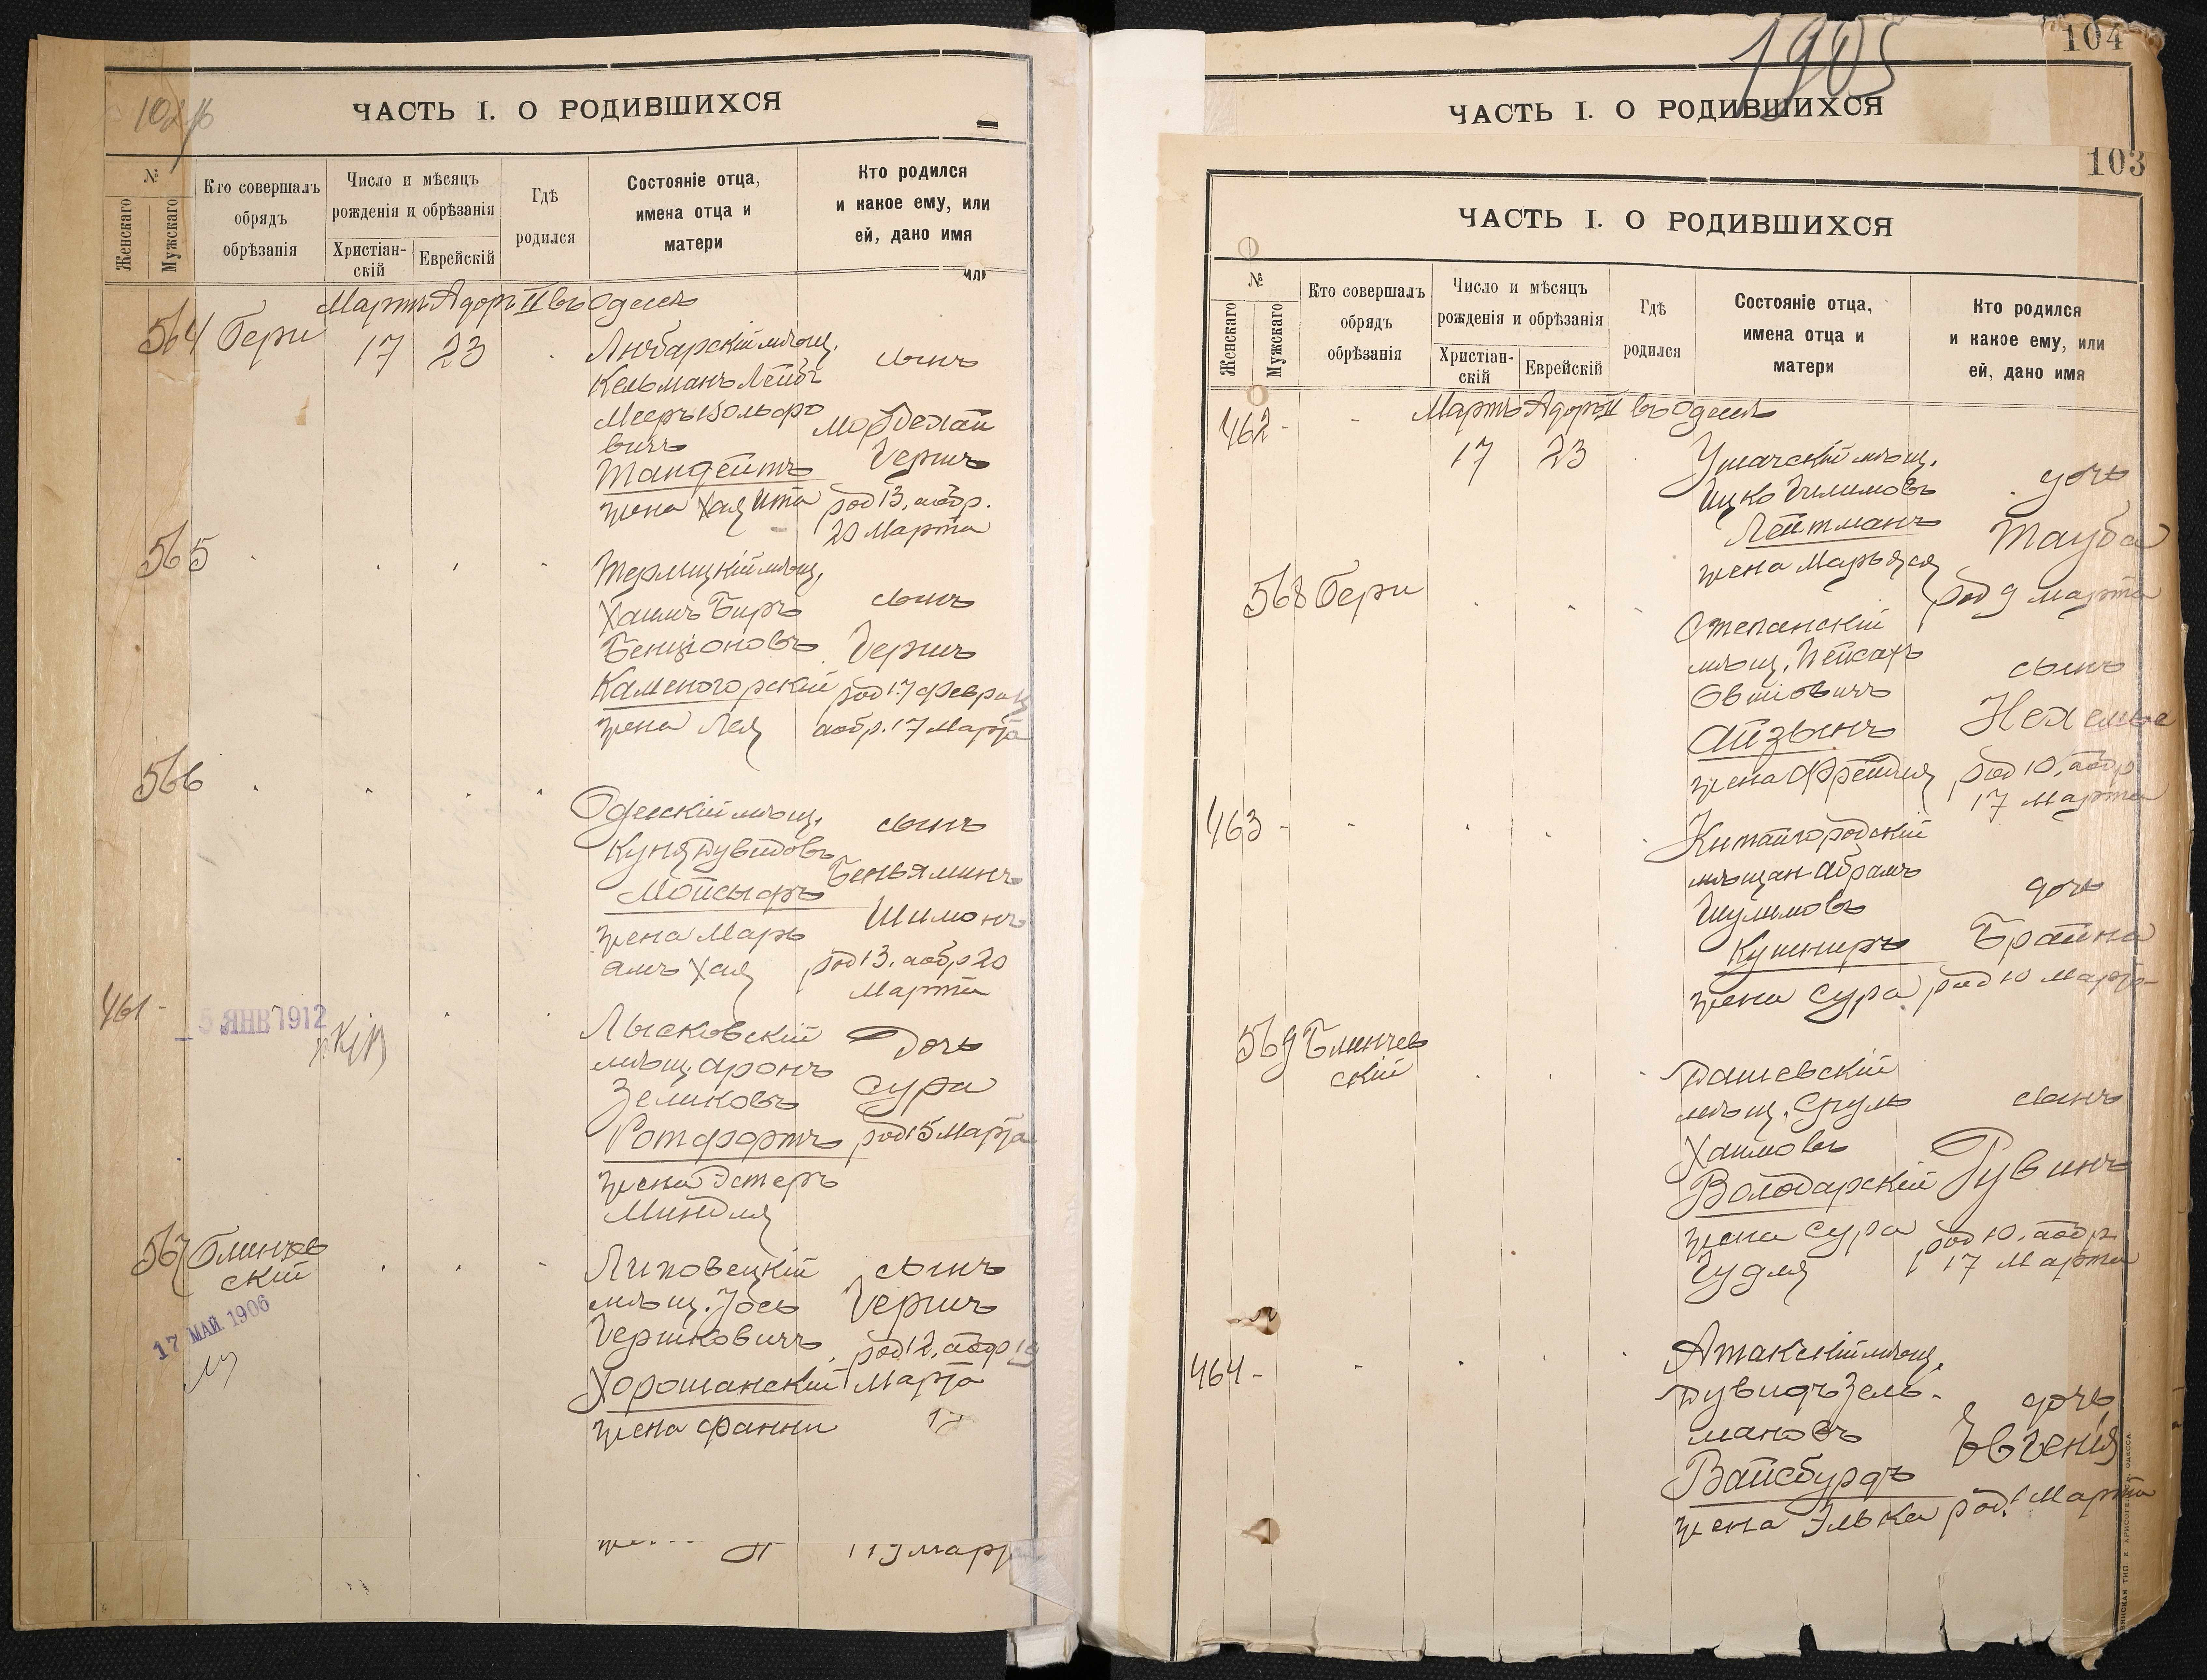 102 об
ЧАСТЬ I. О РОДИВШИХСЯ
№
Женскаго
Мужскаго
Кто совершалъ
обрядъ
обрѣзанія
Число и мѣсяцъ
рожденія и обрѣзанія
Христіан-
скій
Еврейскій
Гдѣ
родился
Состояніе отца,
имена отца и
матери
Кто родился
и какое ему, или
ей, дано имя
или
Мартъ Адоръ II въ Одессѣ
564 Бери 17 23
Любарскій мѣщ.
Кельманъ Лейбъ
Мееръ Вольфо
вичъ
Тандейтъ
жена Хая Ита
сынъ
Мордехай
Герш
род 13, аобр.
20 Марта
565
Терлицкій мѣщ.
Хаимъ Беръ
Бенціоновъ
Каменогорскій
жена Лея
сынъ
Гершъ
род 17 Февраля
аобр. 17 Марта
566
Одесскій мѣщ.
Куня Дувидовъ
Мойсыфъ
жена Марь
ямъ Хая
сынъ
Беньяминъ
Шимонъ
род 13, аобр 20
Марта
461 -
5 ЯНВ 1912
Лысковскій
мѣщ. Аронъ
Зеликовъ
Ротфортъ
жена Эстеръ
Миндля
Дочь
Сура
род 15 Марта
567 Блинчев
скій
17 МАЙ 1906
Липовецкій
мѣщ. Іось
Гершковичъ
Хорошанскій
жена Фанни
сынъ
Гершъ
род 12, аобр 19
Марта
марта
1905
104
ЧАСТЬ I. О РОДИВШИХСЯ
103
ЧАСТЬ I. О РОДИВШИХСЯ
№
Женскаго
Мужскаго
Кто совершалъ
обрядъ
обрѣзанія
Число и мѣсяцъ
рожденія и обрѣзанія
Христіан-
скій
Еврейскій
Гдѣ
родился
Состояніе отца,
имена отца и
матери
Кто родился
и какое ему, или
ей, дано имя
Мартъ Адоръ II въ Одессѣ
462 - - 17 23
Ушачскій мѣщ.
Ицко
Лейтманъ
жена Марьяся
дочь
Тауба
род 9 Марта
568 Бери
Степанскій
мѣщ. Пейсахъ
Овшіовичъ
Айзынъ
жена Фрейдля
сынъ
Нехемье
род 10, аобр
17 Марта
463 - -
Китайгородскій
мѣщан Абрамъ
Шулимовъ
Кушниръ
жена Сура
дочь
Брайна
род 10 Марта
569 Блинчев
скій
Дашевскій
мѣщ. Сруль
Хаимовъ
Володарскій
жена Сура
Гудля
сынъ
Рувинъ
род 10, аобр
17 Марта
464 - -
Атакскій мѣщ.
Дувидъ Зель-
мановъ
Вайсбурдъ
жена Элька
дочь
Евгенія
род. 1 Марта